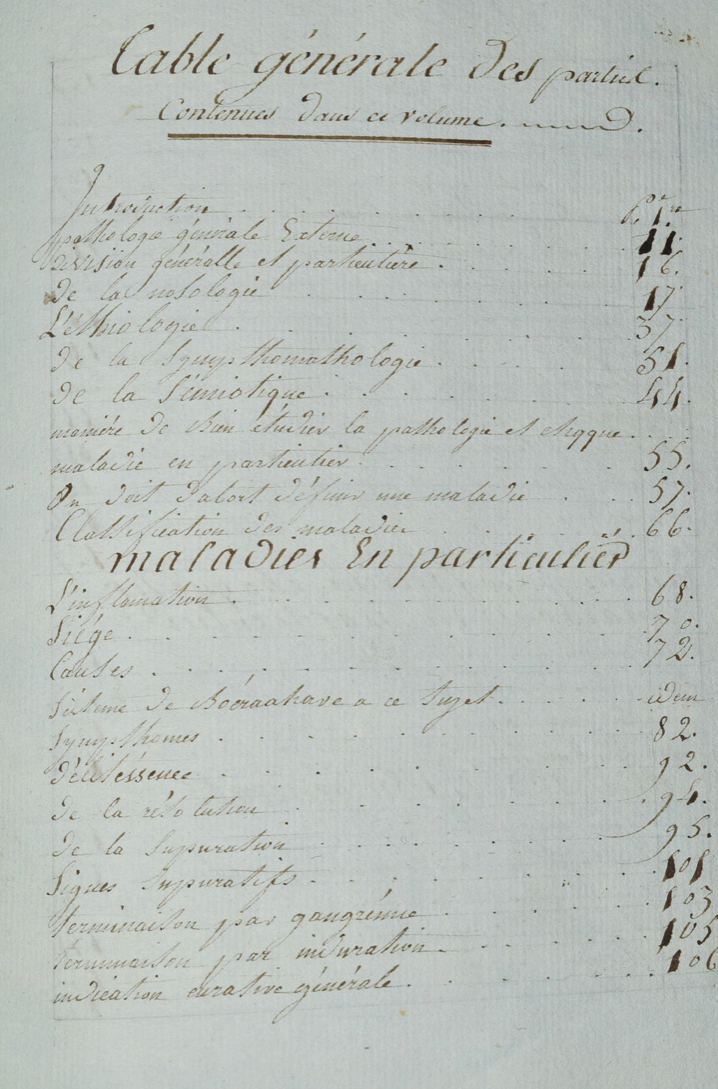 Table générale Des partiel.
Contenues dans ce volume.
Introduction . . . . . P.re 1.re
pathologie générale Externe . . . . 11.
Division généralle et particuliere . . . . 16.
De la nosologie . . . . 17.
L'Ethiologie . . . . 37.
de la Symptthomathologie . . . . 51.
de la Sémiotique . . . . 44.
maniére de bien étudier la pathologie et chaque . . .
maladie en particulier . . . . 55.
On doit dabort définir une maladie . . . . 57.
Classification des maladies . . . . 66.
maladies En particulier
L'inflamation . . . . 68.
Siége . . . . 70.
Causes . . . . 72.
Sisteme de Böeraahave a ce Sujet . . . . idem
Sympthomes . . . . 82.
Délitéssence . . . . 92.
de la résolution . . . . 94.
de la Supuration . . . . 95.
Signes Supuratifs . . . . 101
terminaison par gangrénne . . . . 103
terminaison par induration . . . . 105
indication curative générale . . . . 106